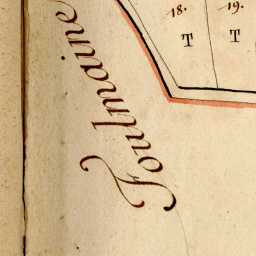 18. 19.
T T
Toulmaine